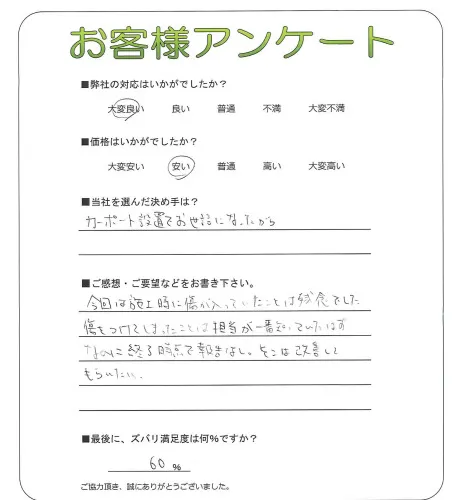 お客様アンケート
■弊社の対応はいかがでしたか？
大変良い 良い 普通 不満 大変不満
■価格はいかがでしたか？
大変安い 安い 普通 高い 大変高い
■当社を選んだ決め手は？
カーポート設置でお世話になったから
■ご感想・ご要望などをお書き下さい。
今回は施工時に傷が入っていたことは残念でした
傷をつけてしまったことは担当が一番知っていたはず
なのに終了時点で報告なし。そこは改善して
もらいたい。
■最後に、ズバリ満足度は何%ですか？
60 %
ご協力頂き、誠にありがとうございました。